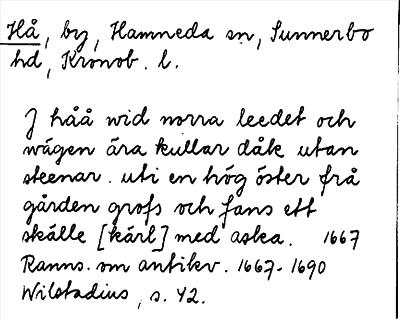 Hå, by, Hamneda sn, Sunnerbo
hd, Kronob. l.
J håå wid norra leedet och
wägen ära kullar dåk utan
steenar. uti en hög öster frå
gården grofs och fans ett
skålle [kärl] med aska. 1667
Ranns. om antikv. 1667-1690
Wilstadius, s. 42.